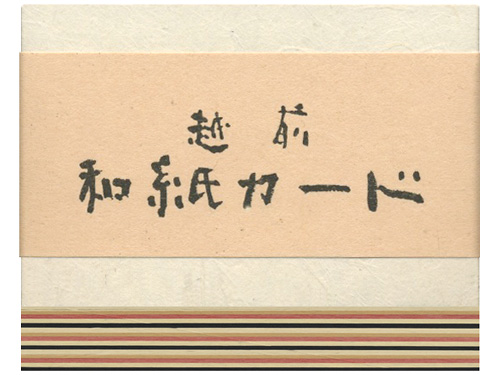 越前
和紙カード